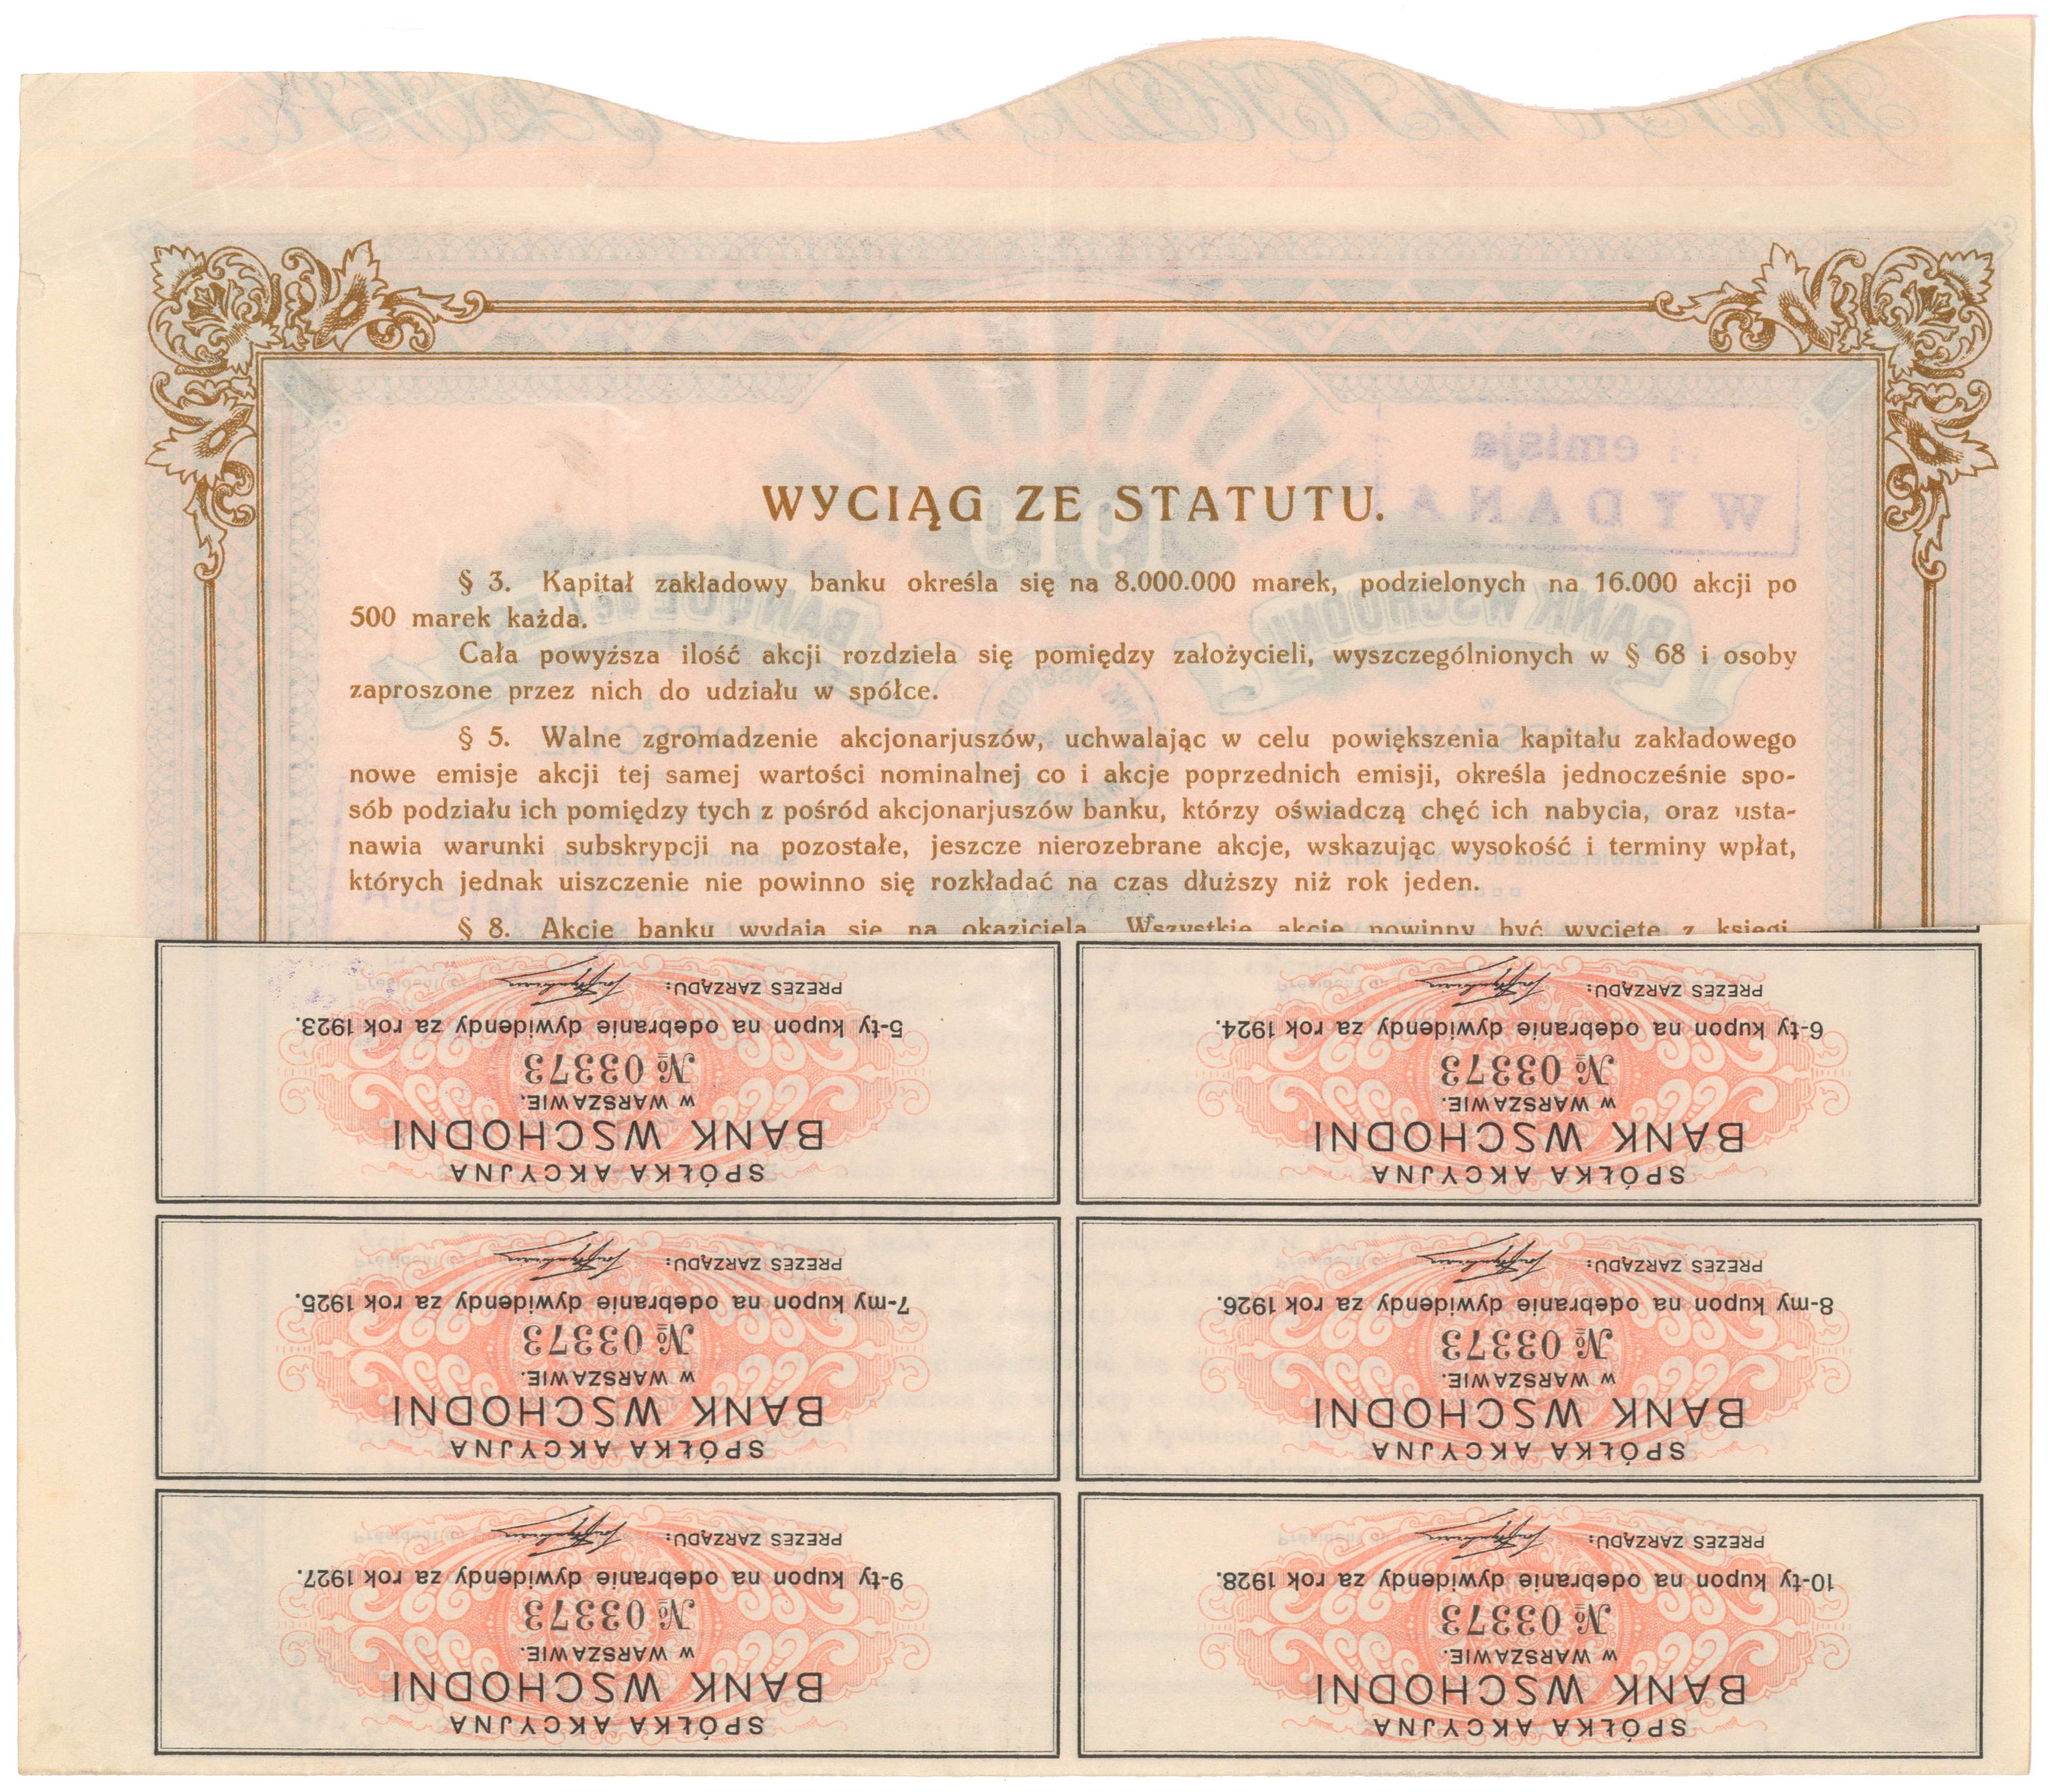 WYCIĄG ZE STATUTU.
§ 3. Kapitał zakładowy banku określa się na 8.000.000 marek, podzielonych na 16.000 akcji po
500 marek każda.
Cała powyższa ilość akcji rozdziela się pomiędzy założycieli, wyszczególnionych w § 68 i osoby
zaproszone przez nich do udziału w spółce.
§ 5. Walne zgromadzenie akcjonarjuszów, uchwalając w celu powiększenia kapitału zakładowego
nowe emisje akcji tej samej wartości nominalnej co i akcje poprzednich emisji, określa jednocześnie spo-
sób podziału ich pomiędzy tych z pośród akcjonarjuszów banku, którzy oświadczą chęć ich nabycia, oraz usta-
nawia warunki subskrypcji na pozostałe, jeszcze nierozebrane akcje, wskazując wysokość i terminy wpłat,
których jednak uiszczenie nie powinno się rozkładać na czas dłuższy niż rok jeden.
§ 8. Akcje banku wydają się na okaziciela. Wszystkie akcje powinny być wycięte z księgi,
emisja
WYDANA
1919
BANK WSCHODNI
SPÓŁKA AKCYJNA
BANK WSCHODNI
W WARSZAWIE.
№ 03373
10-ty kupon na odebranie dywidendy za rok 1928.
PREZES ZARZĄDU:
SPÓŁKA AKCYJNA
BANK WSCHODNI
W WARSZAWIE.
№ 03373
9-ty kupon na odebranie dywidendy za rok 1927.
PREZES ZARZĄDU:
SPÓŁKA AKCYJNA
BANK WSCHODNI
W WARSZAWIE.
№ 03373
8-my kupon na odebranie dywidendy za rok 1926.
PREZES ZARZĄDU:
SPÓŁKA AKCYJNA
BANK WSCHODNI
W WARSZAWIE.
№ 03373
7-my kupon na odebranie dywidendy za rok 1925.
PREZES ZARZĄDU:
SPÓŁKA AKCYJNA
BANK WSCHODNI
W WARSZAWIE.
№ 03373
6-ty kupon na odebranie dywidendy za rok 1924.
PREZES ZARZĄDU:
SPÓŁKA AKCYJNA
BANK WSCHODNI
W WARSZAWIE.
№ 03373
5-ty kupon na odebranie dywidendy za rok 1923.
PREZES ZARZĄDU: